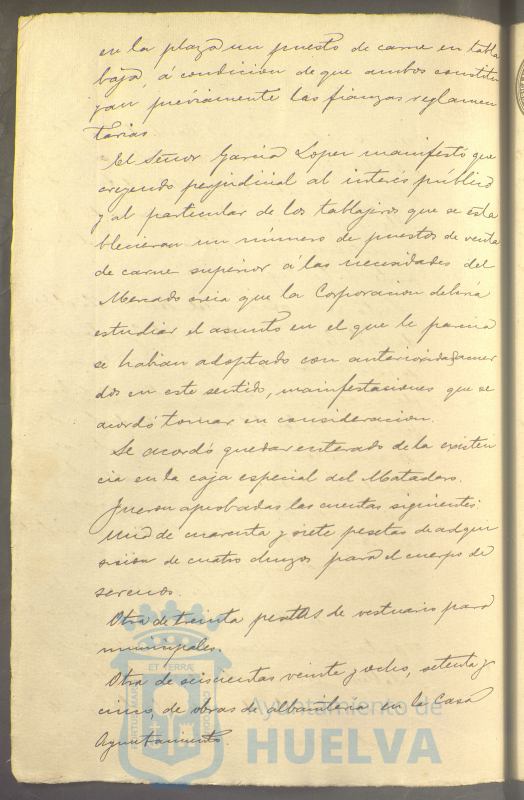 en la plaza un puesto de carne en tabla
baja, á condicion de que ambos constitu
yan préviamente las fianzas reglamen
tarias
El Señor Garcia Lopez manifestó que
creyendo perjudicial al interés público
y al particular de los tablajeros que se esta
blecieran un número de puestos de venta
de carne superior á las necesidades del
Mercado creia que la Corporacion deberia
estudiar el asunto en el que le parecia
se habian adoptado con anterioridad acuer
dos en este sentido, manifestaciones que se
acordó tomar en consideracion.
Se acordó quedar enterado de la existen
cia en la caja especial del Matadero.
Fueron aprobadas las cuentas siguientes.
Una de cuarenta y siete pesetas de adqui
sicion de cuatro chuzos para el cuerpo de
serenos.
Otra de treinta pesetas de vestuario para
municipales.
Otra de seiscientas veinte y ocho, setenta y
cinco, de obras de albañileria en la Casa
Ayuntamiento.
Ayuntamiento de
HUELVA